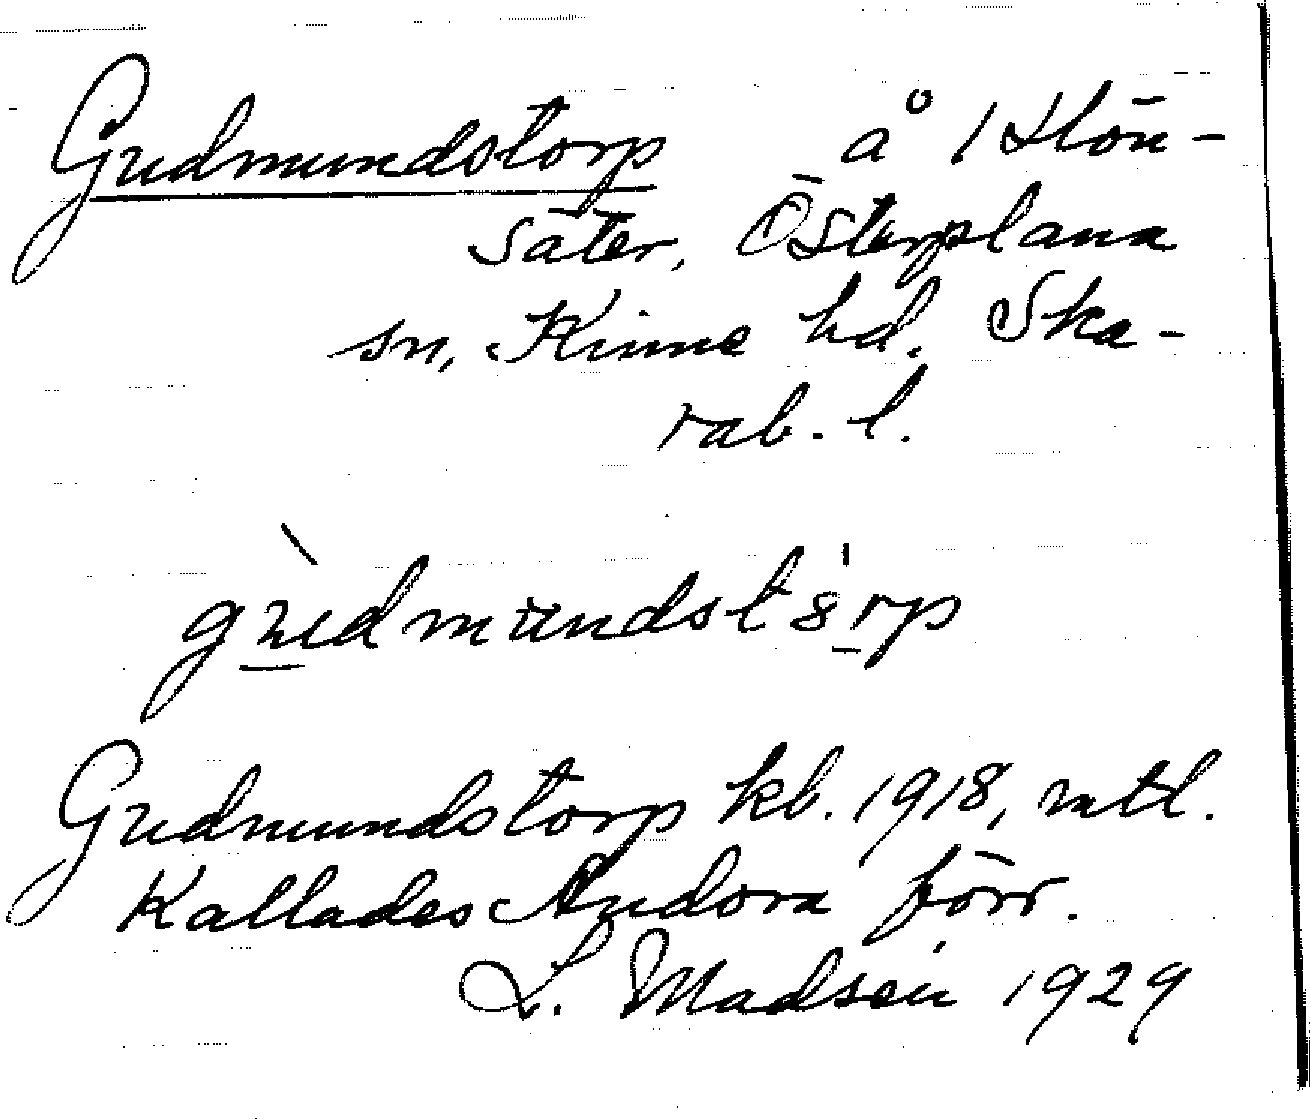 Gudmundstorp å 1 Hön-
säter, Österplana
sn, Kinne hd. Ska-
rab. l.
gùdmundstörp
Gudmundstorp kb. 1918, mtl.
Kallades Andora förr.
L. Madsén 1929